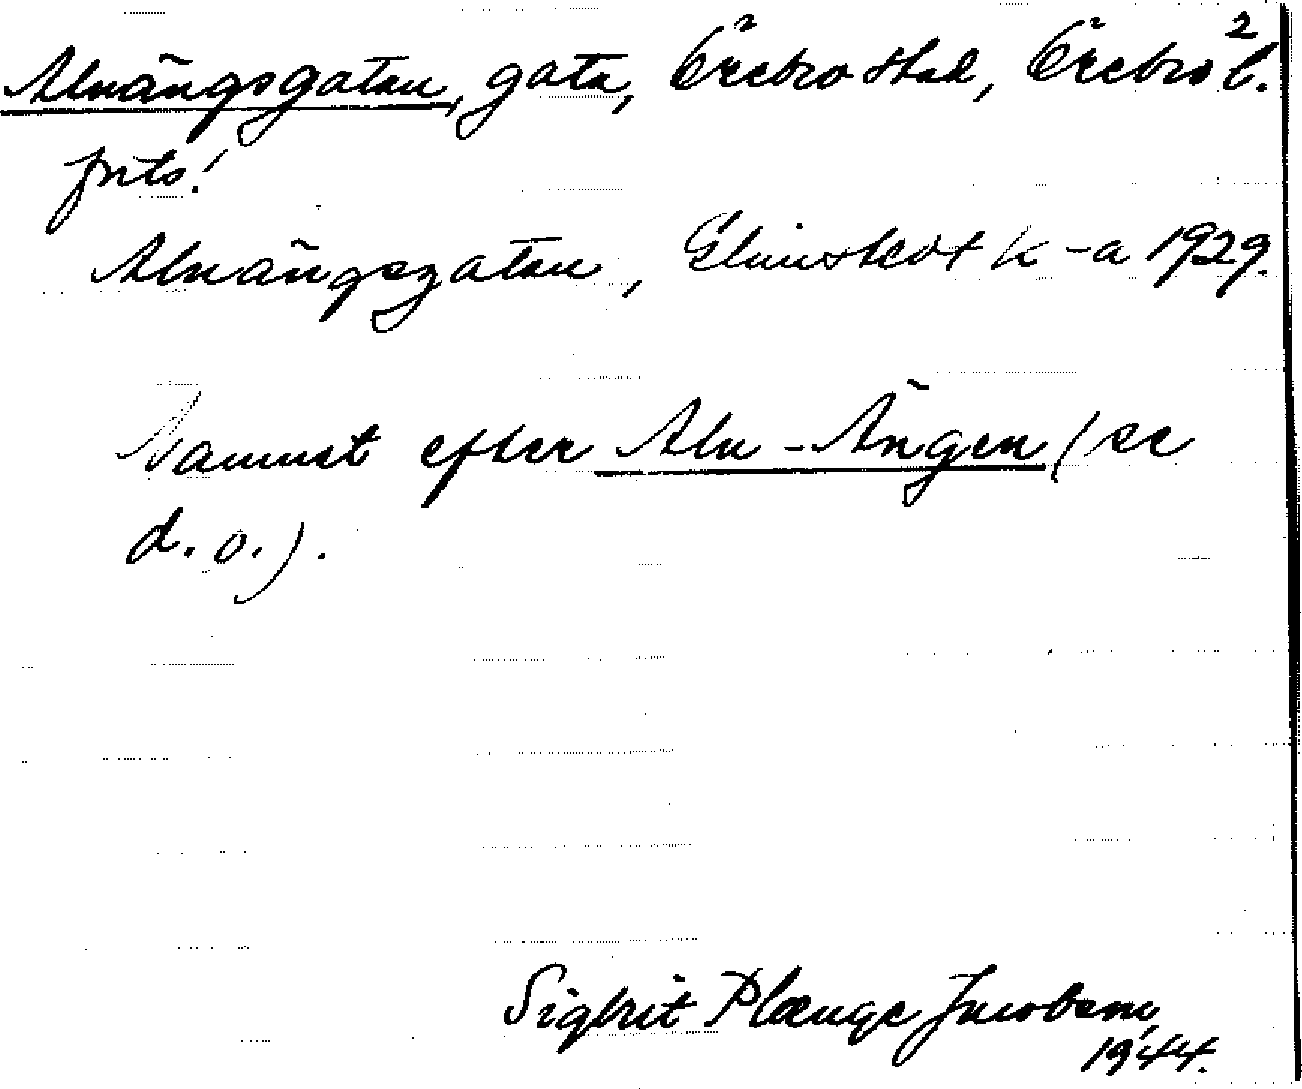 Alnängsgatan, gata, Örebro stad, Örebro l.
frts.
Alnängsgatan, Elmstedt K-a 1929.
Namnet efter Aln-Ängen (se
d. o.).
2
Sigbrit Plænge Jacobson,
1944.